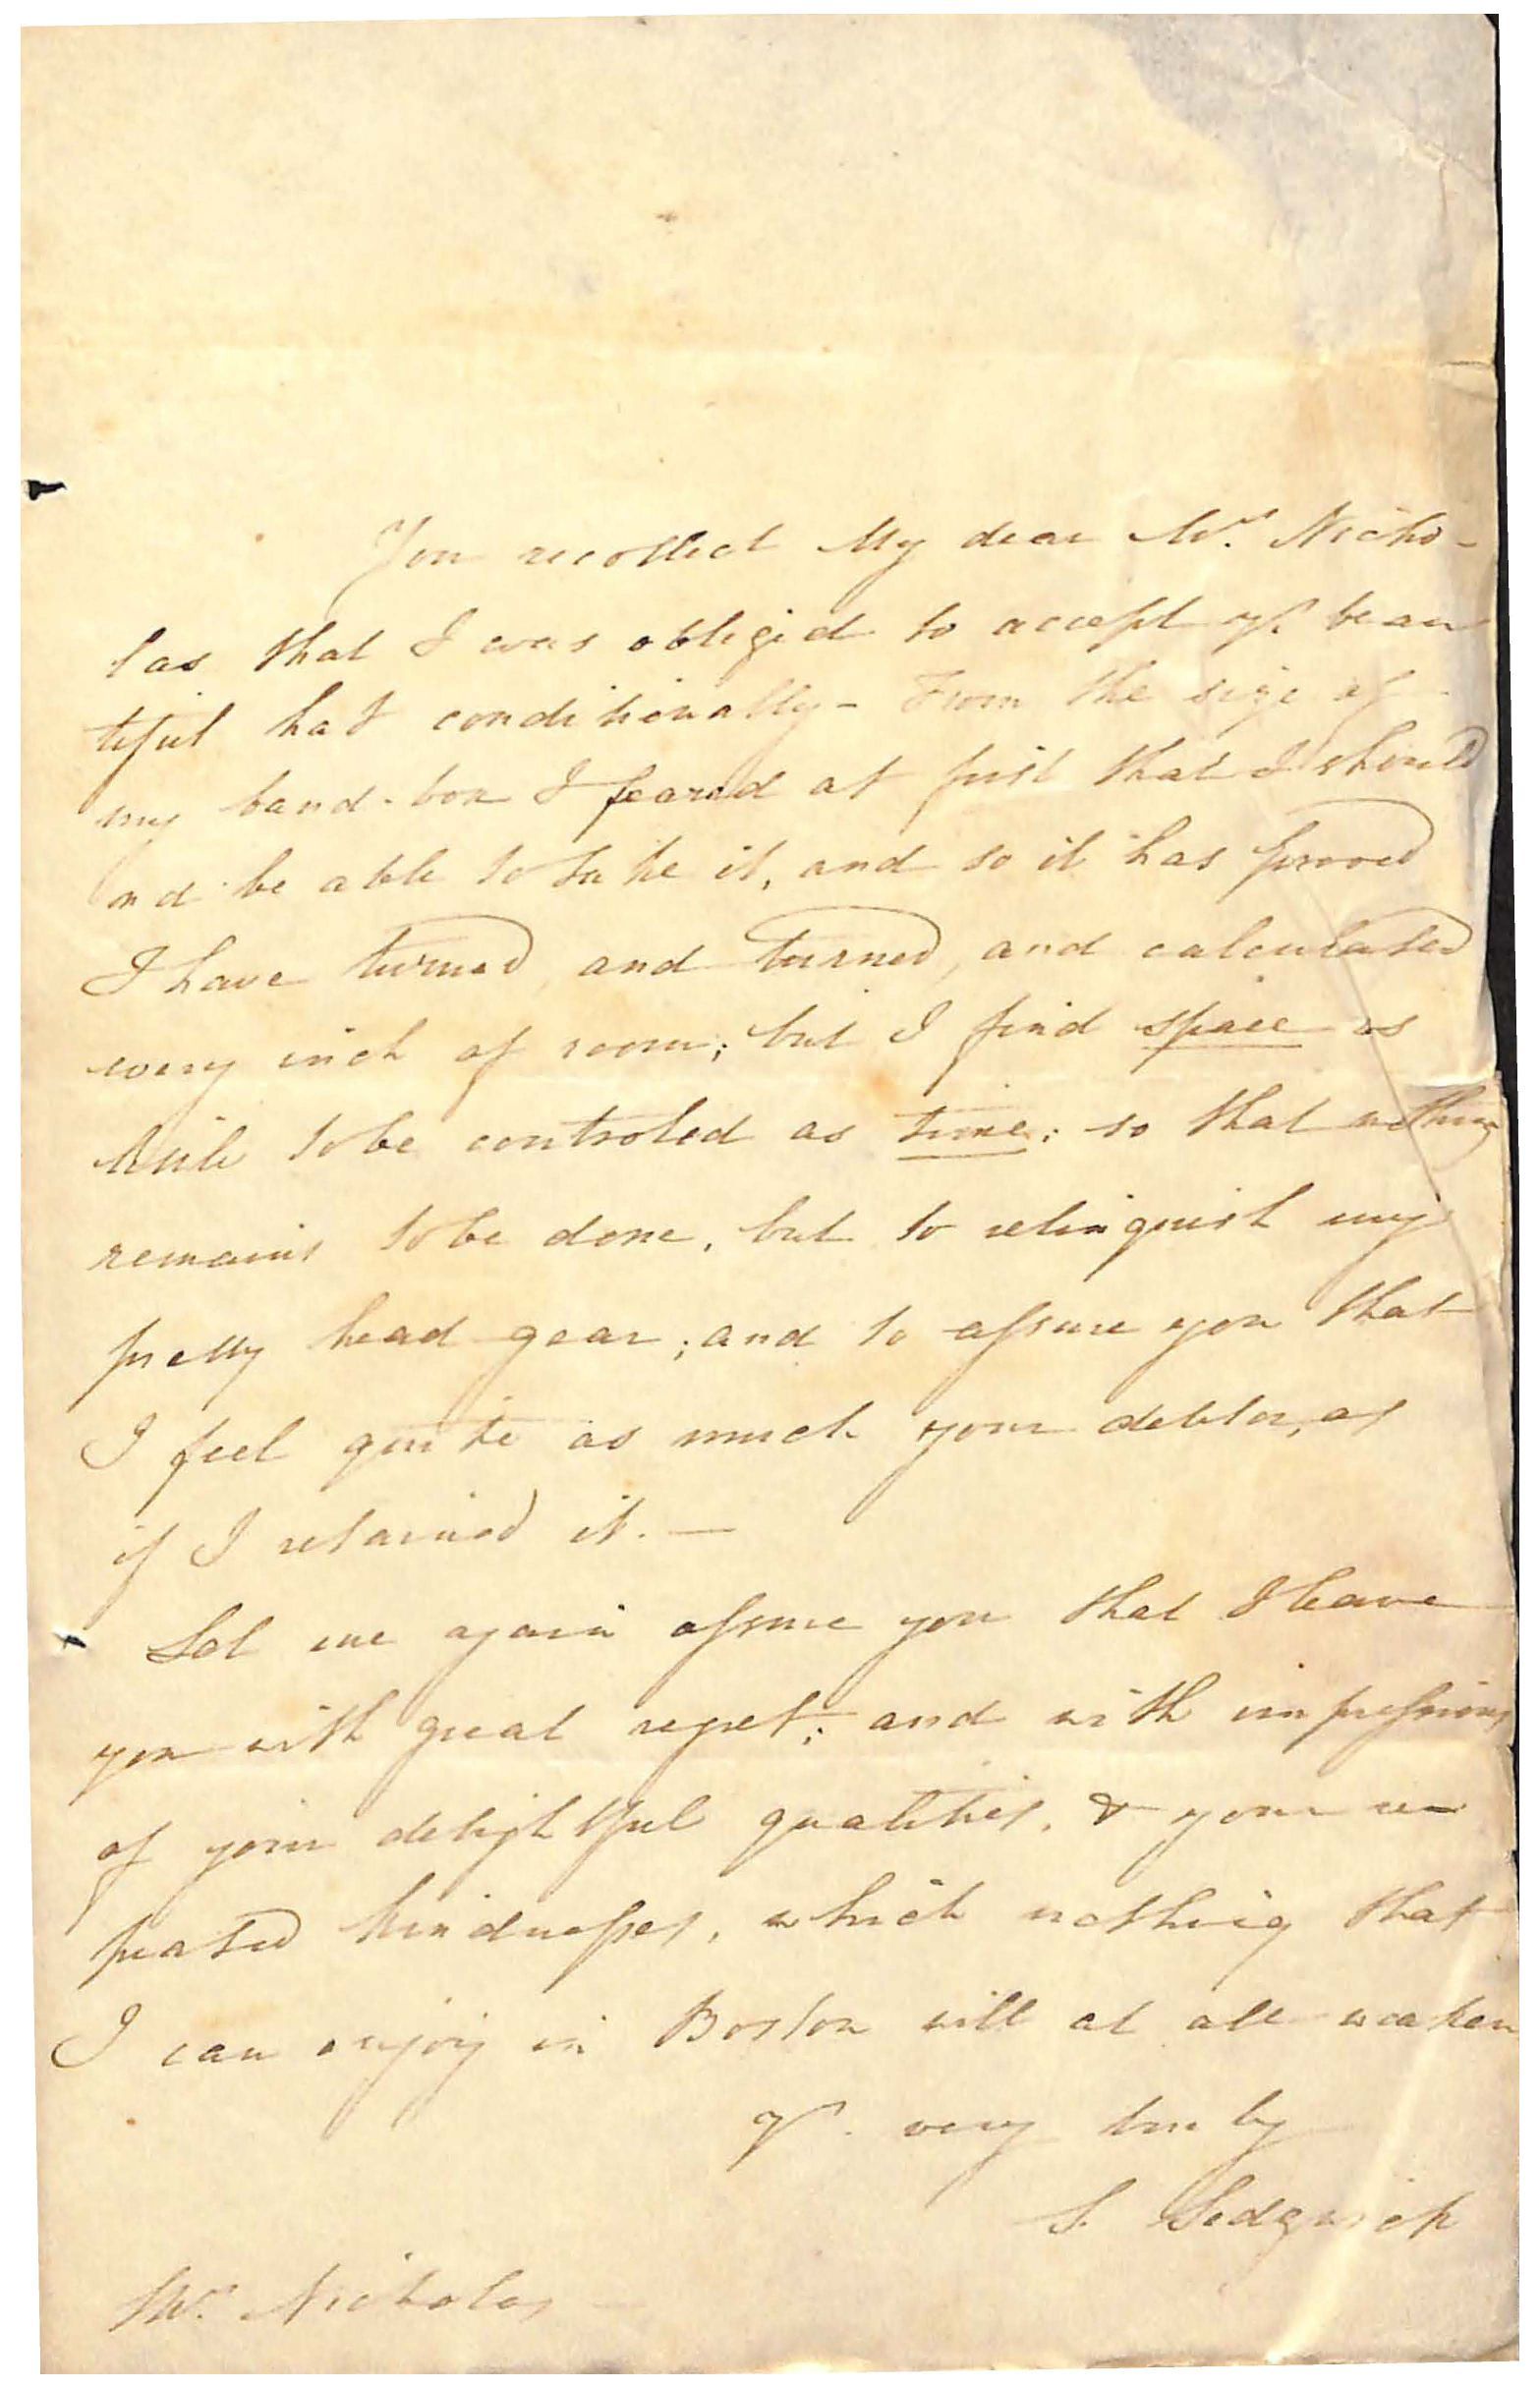 You recollect My dear Mrs. Nicho-
las that I was obliged to accept yr. beau
tiful hat conditionally - From the size of
my band-box I feared at first that I should
not be able to take it, and so it has proved
I have turned, and turned, and calculated
every inch of room; but I find space as
little to be controled as time; so that nothing
remains to be done, but to relinquish my
pretty head gear; and to assure you that
I feel quite as much your debtor, as
if I retained it. —
Let me again assure you that I leave
you with great regret; and with impressions
of your delightful qualities, & your re
peated kindnesses, which nothing that
I can enjoy in Boston will at all weaken
Yr. very truly
S. Sedgwick
Mrs. Nicholas